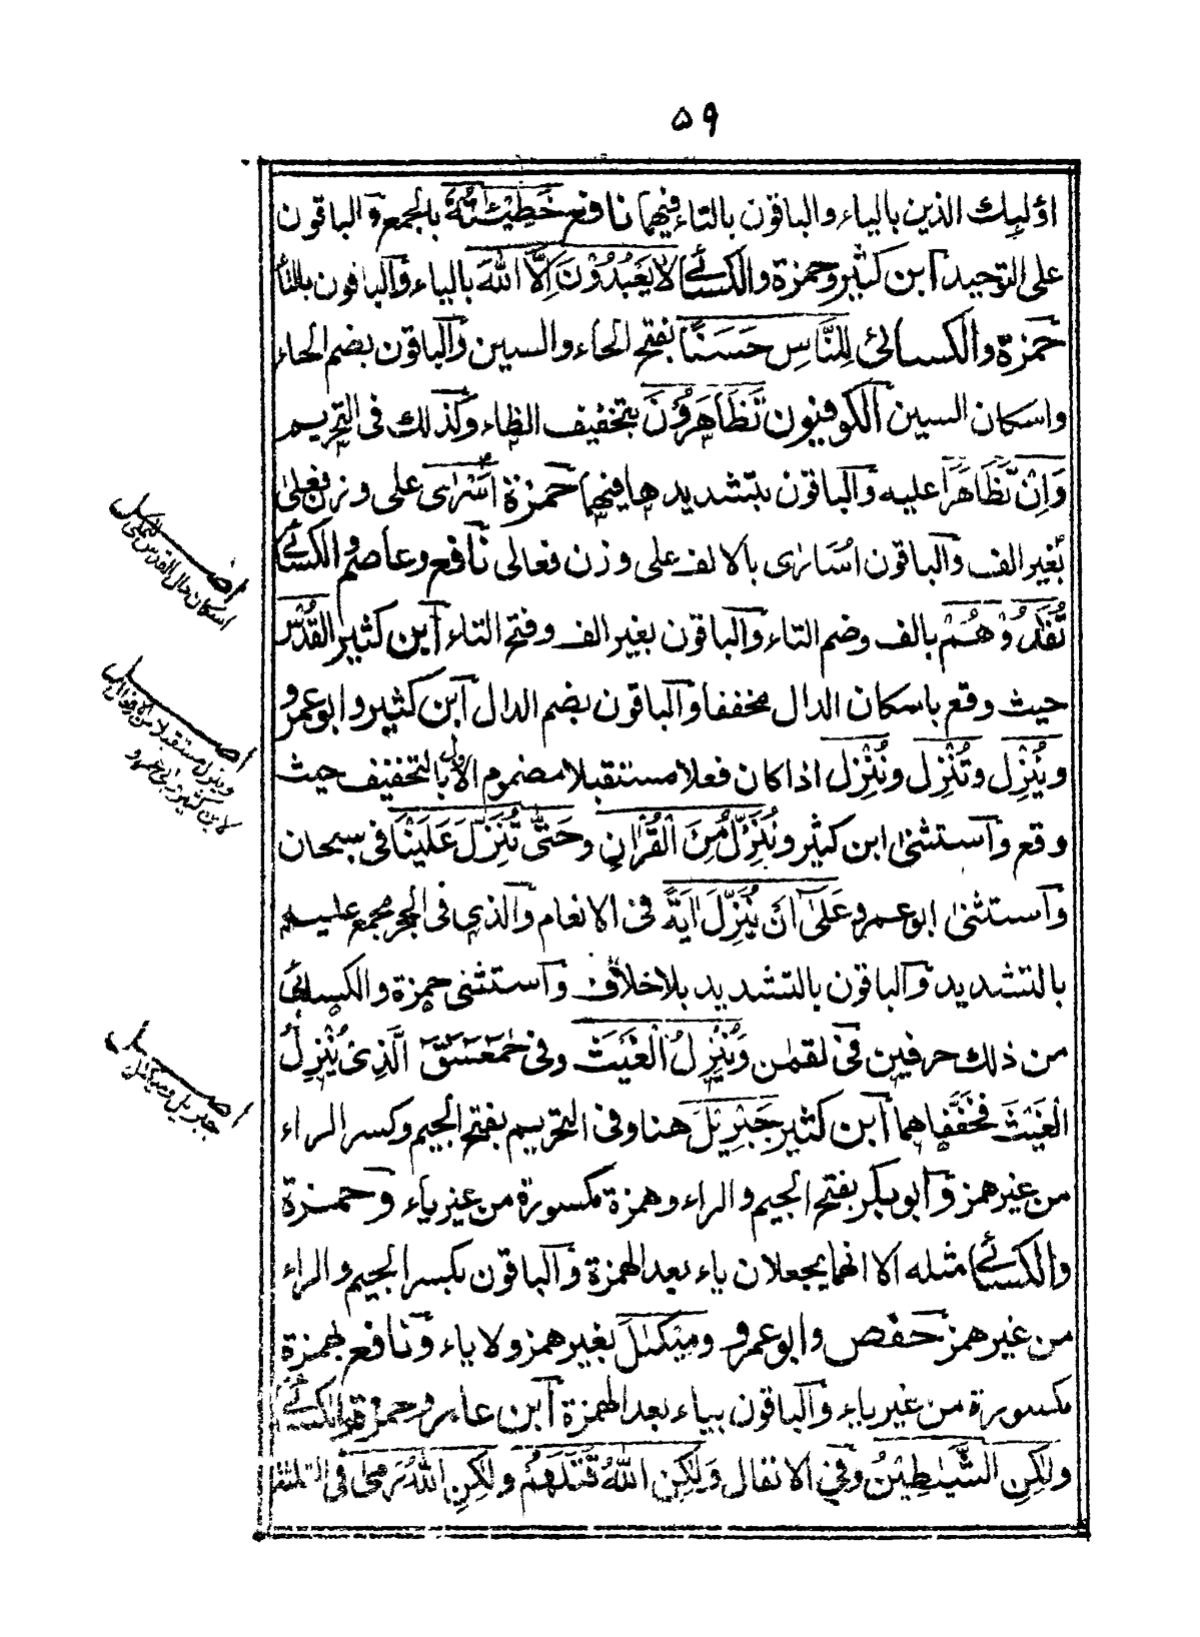 ۵۹
اولئك الذين بالياء والباقون بالتاء فيهما نافع خَطِيْئٰتُهٗ بالجمع والباقون
على التوحيد ابن كثير وحمزة والكسائى لا يَعْبُدُوْنَ اِلَّا اللّٰهَ بالياء والباقون بالتاء
حمزة والكسائى لِلنَّاسِ حَسَنًا بفتح الحاء والسين والباقون بضم الحاء
واسكان السين الكوفيون تَظَاهَرُوْنَ بتخفيف الظاء وكذلك فى التحريم
وَاِنْ تَظَاهَرَا عليه والباقون بتشديدها فيهما حمزة اَسْرٰى على وزن فعلى
بغير الف والباقون اُسَارٰى بالالف على وزن فعالى نافع وعاصم والكسائى
تُفٰدُوْهُمْ بالف وضم التاء والباقون بغير الف وفتح التاء ابن كثير القُدْس
حيث وقع باسكان الدال مخففا والباقون بضم الدال ابن كثير وابو عمرو
ويُنْزِل وتُنْزِل ونُنْزِل اذا كان فعلا مستقبلا مضموم الاول بالتخفيف حيث
وقع واستثنى ابن كثير ونُنَزِّلُ مِنَ الْقُرْاٰنِ وحَتّٰى تُنَزِّلَ عَلَيْنَا فى سبحان
واستثنى ابو عمرو عَلٰى اَنْ يُنَزِّلَ اٰيَةً فى الانعام والذى فى الحجر مجمع عليه
بالتشديد والباقون بالتشديد بلا خلاف واستثنى حمزة والكسائى
من ذلك حرفين فى لقمٰن وَيُنْزِلُ الْغَيْثَ وفى حٰمٓعٓسٓقٓ الَّذِىْ يُنْزِلُ
الْغَيْثَ فخففاهما ابن كثير جَبْرِيْلَ هنا وفى التحريم بفتح الجيم وكسر الراء
من غير همز وابو بكر بفتح الجيم والراء وهمزة مكسورة من غير ياء وحمزة
والكسائى مثله الا انهما يجعلان ياء بعد الهمزة والباقون بكسر الجيم والراء
من غير همز حفص وابو عمرو ومِيْكٰلَ بغير همز ولا ياء ونافع بهمزة
مكسورة من غير ياء والباقون بياء بعد الهمزة ابن عامر وحمزة والكسائى
ولٰكِنِ الشَّيٰطِيْنُ وفى الانفال وَلٰكِنِ اللّٰهُ قَتَلَهُمْ ولٰكِنِ اللّٰهُ رَمٰى فى الثلثة
اصل
اسكان دال القدس
اصل
وينزل مستقبلا
لابن كثير
اصل
جبريل وميكائيل